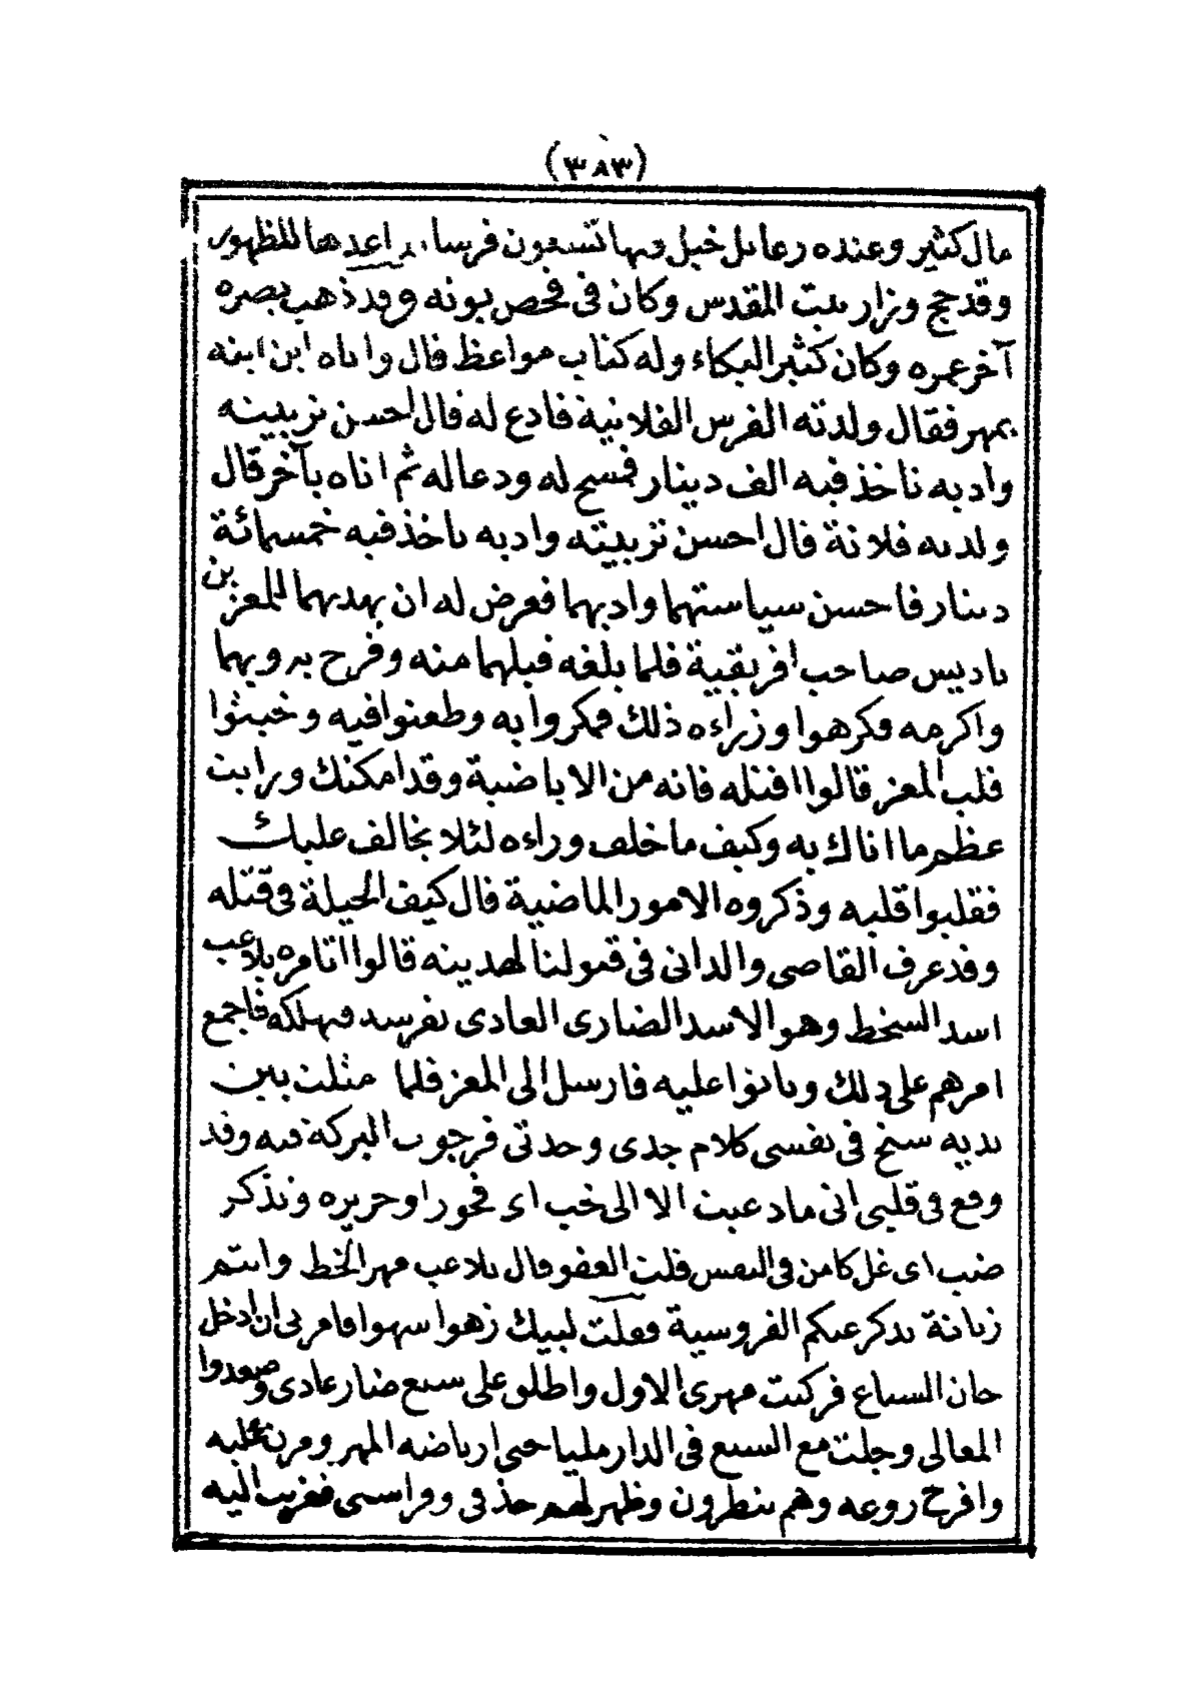 (٣٨٣)
مال كثير وعنده رعائل خيل وبها تسعون فرسا اعدها للظهور
وقد حج وزار بيت المقدس وكان فى فحص بونه وقد ذهب بصره
آخر عمره وكان كثير البكاء وله كتاب مواعظ قال واتاه ابن ابنه
بمهر فقال ولدته الفرس الفلانية فادع له قال احسن تربيته
وادبه تاخذ فيه الف دينار فمسح له ودعا له ثم اتاه بآخر قال
ولدته فلانة قال احسن تربيته وادبه تاخذ فيه خمسمائة
دينار فاحسن سياستهما وادبهما فعرض له ان يهديهما للمعز بن
باديس صاحب افريقية فلما بلغه قبلهما منه وفرح به وبهما
واكرمه فكرهوا وزراءه ذلك فمكروا به وطعنوا فيه وخبثوا
قلب المعز قالوا اقتله فانه من الاباضية وقد امكنك ورايت
عظم ما اتاك به وكيف ما خلف وراءه لئلا يخالف عليك
فقلبوا قلبه وذكروه الامور الماضية قال كيف الحيلة فى قتله
وقد عرف القاصى والدانى فى قبولنا لهديته قالوا اتامره يلاعب
اسد السخط وهو الاسد الضارى العادى يفرسه فيهلكه فاجمع
امرهم على ذلك وباتوا عليه فارسل الى المعز فلما مثلت بين
يديه سنح فى نفسى كلام جدى وحدتى فرجوت البركة فيه وقد
وقع فى قلبى انى ما دعيت الا الى خب اى فجور او جريره وتذكر
ضب اى غل كامن فى النفس قلت العفو قال يلاعب مهر الخط وانتم
زناتة يذكر عنكم الفروسية فقلت لبيك زهوا سهوا فامر بى ان ادخل
حان السباع فركبت مهرى الاول واطلق على سبع ضار عادى وصعدوا
المعالى وجلت مع السبع فى الدار مليا حتى ارتاضه المهر ومرن عليه
وافرخ روعه وهم ينظرون وظهر لهم حذقى وفراستى فقربت اليه